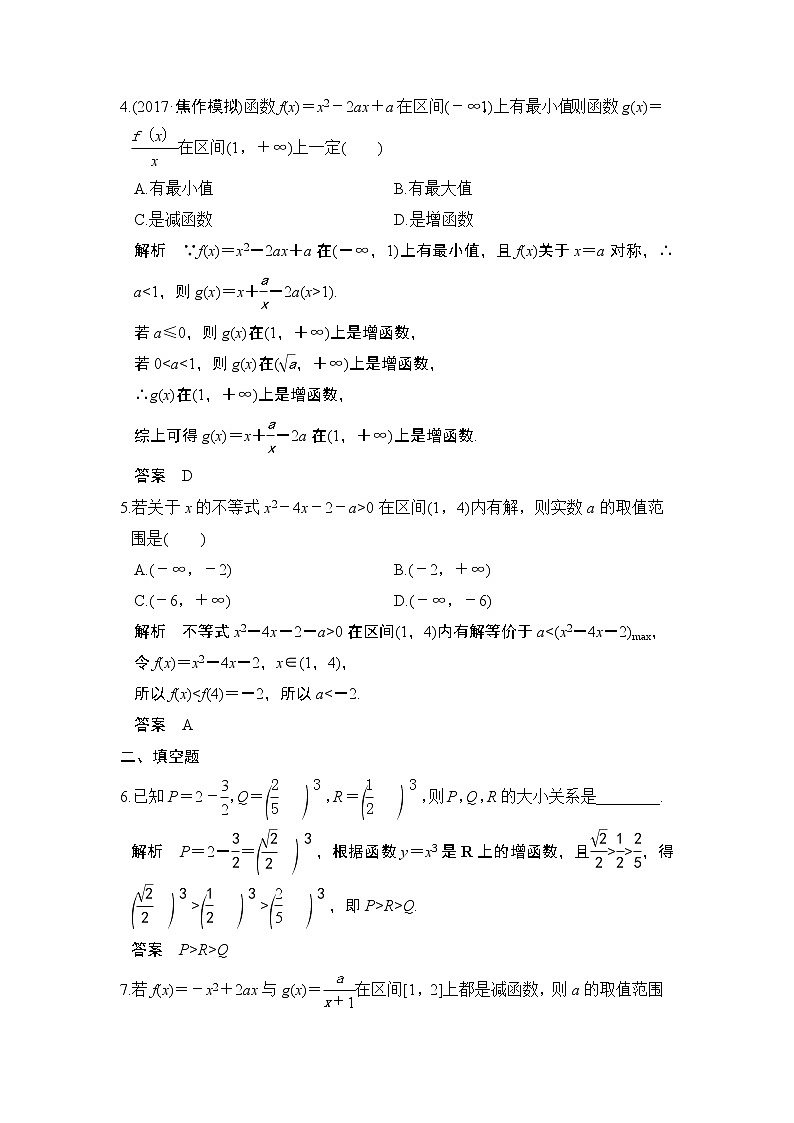 4.(2017·焦作模拟)函数f(x)=x²-2ax+a在区间(-∞1)上有最小值则函数g(x)=
f(x)/x在区间(1,+∞)上一定(  )
A.有最小值 B.有最大值
C.是减函数 D.是增函数
解析 ∵f(x)=x²-2ax+a在(-∞,1)上有最小值,且f(x)关于x=a对称,∴
a<1,则g(x)=x+a/x-2a(x>1).
若a≤0,则g(x)在(1,+∞)上是增函数,
若0<a<1,则g(x)在(√a,+∞)上是增函数,
∴g(x)在(1,+∞)上是增函数,
综上可得g(x)=x+a/x-2a在(1,+∞)上是增函数.
答案 D
5.若关于x的不等式x²-4x-2-a>0在区间(1,4)内有解,则实数a的取值范
围是(  )
A.(-∞,-2) B.(-2,+∞)
C.(-6,+∞) D.(-∞,-6)
解析 不等式x²-4x-2-a>0在区间(1,4)内有解等价于a<(x²-4x-2)max,
令f(x)=x²-4x-2,x∈(1,4),
所以f(x)<f(4)=-2,所以a<-2.
答案 A
二、填空题
6.已知P=2-3/2,Q=(2/5)³,R=(1/2)³,则P,Q,R的大小关系是________.
解析 P=2-3/2=(√2/2)³,根据函数y=x³是R上的增函数,且√2/2>1/2>2/5,得
(√2/2)³>(1/2)³>(2/5)³,即P>R>Q.
答案 P>R>Q
7.若f(x)=-x²+2ax与g(x)=a/(x+1)在区间[1,2]上都是减函数,则a的取值范围